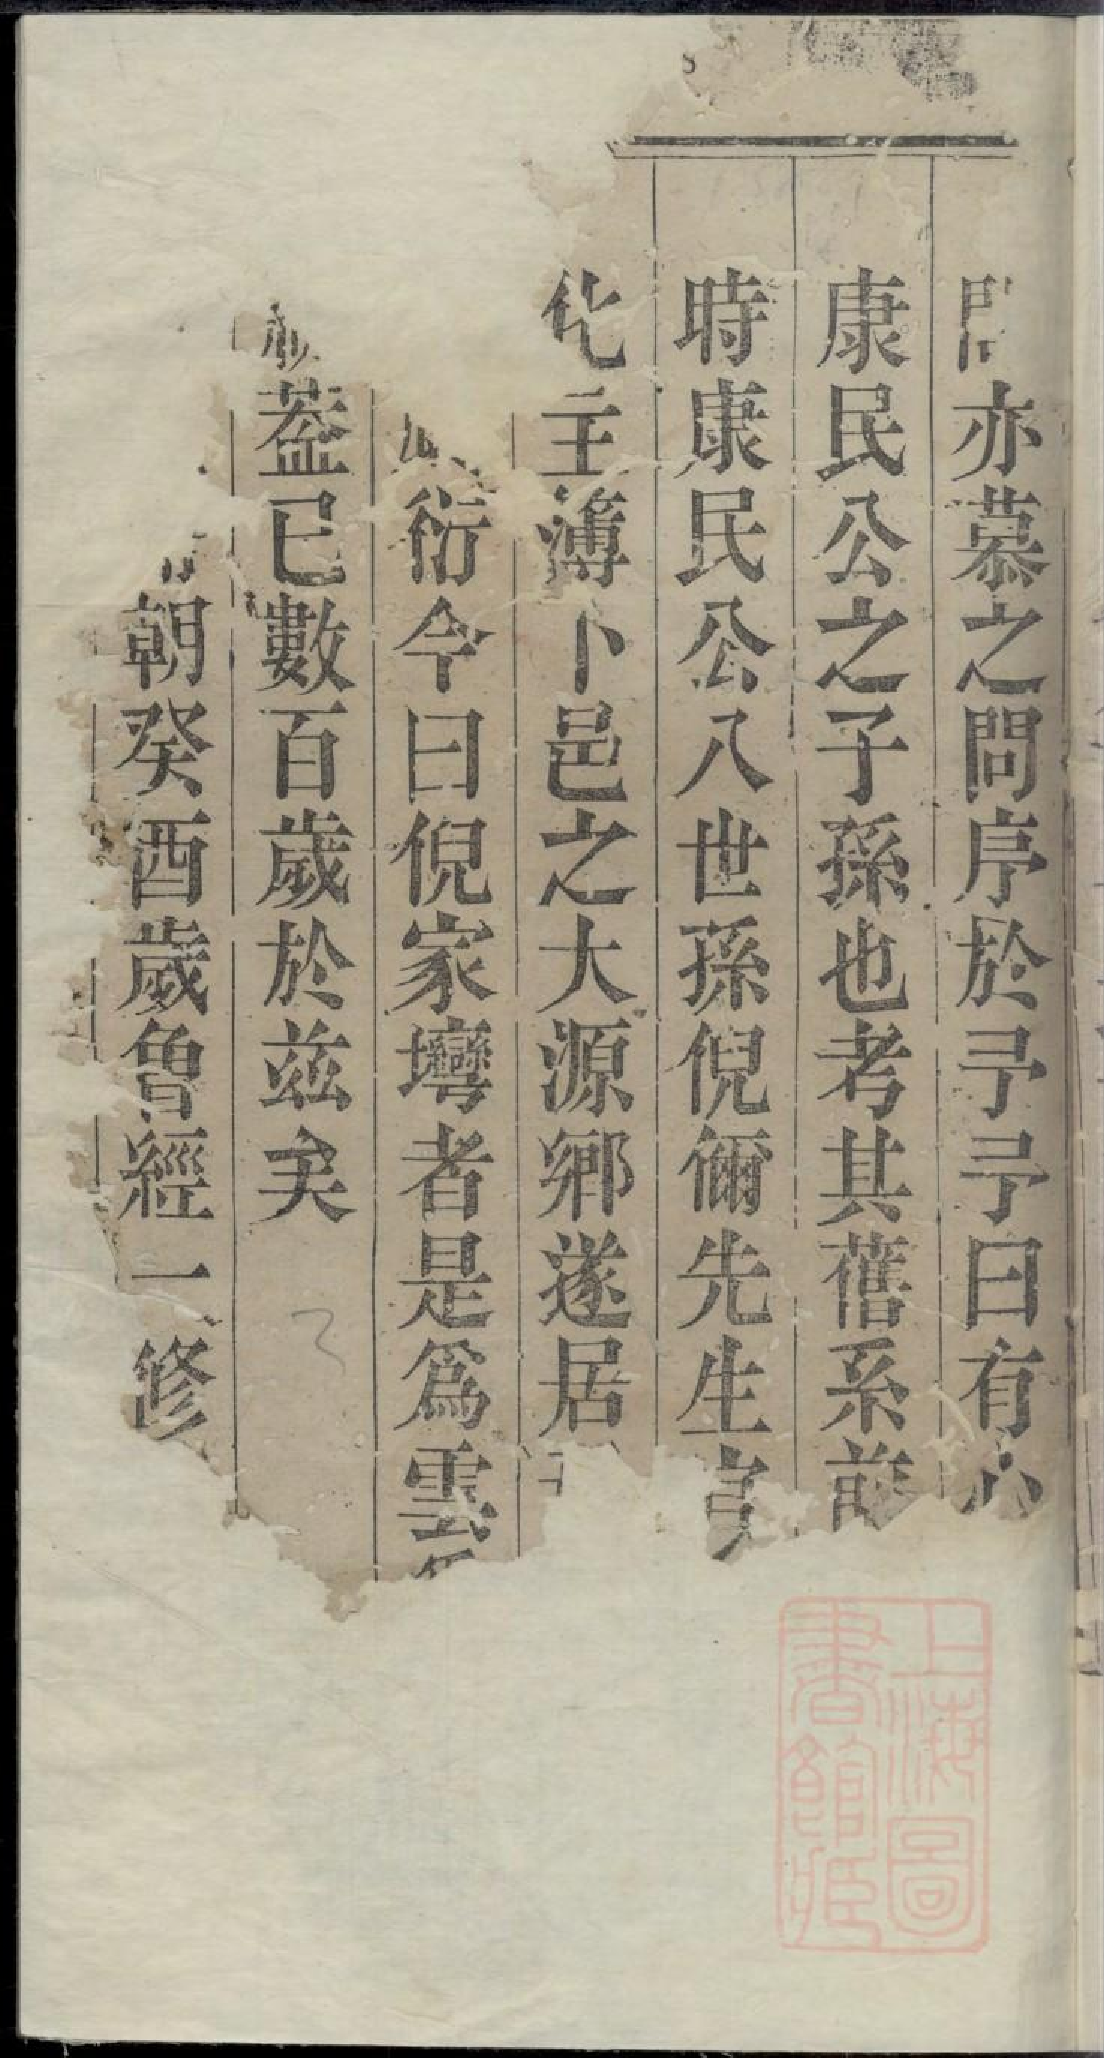 亦慕之問序於予予曰有心
康民公之子孫也考其舊系
時康民公八世孫倪儞先生
化主薄卜邑之大源鄉遂居
衍今曰倪家壪者是爲雲
葢已數百歲於茲矣
朝癸酉歲魯經一修
上海圖書館藏